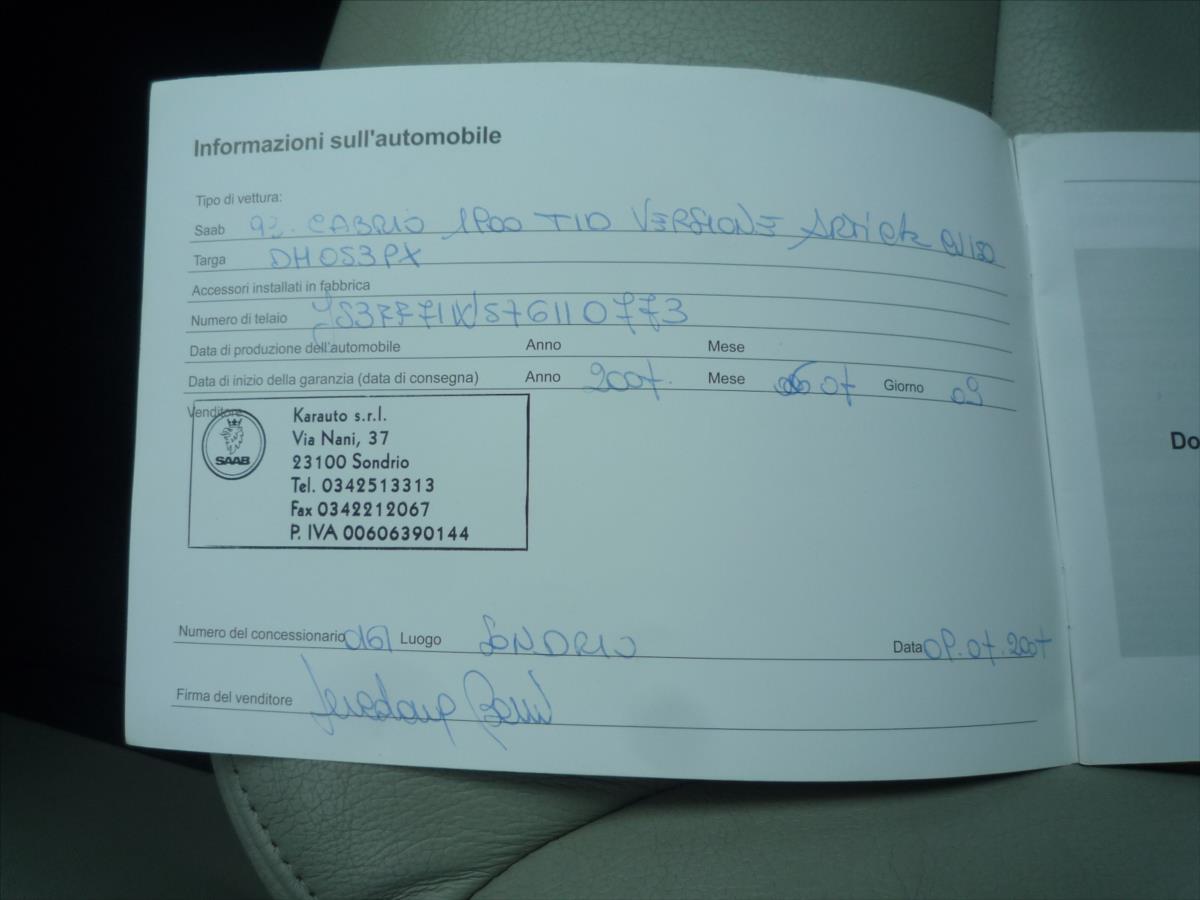 Informazioni sull'automobile
Tipo di vettura:
Saab 93. CABRIO 1900 TID VERSIONE CV150
Targa DH053PX
Accessori installati in fabbrica
Numero di telaio YS3FF71W576110773
Data di produzione dell'automobile Anno Mese
Data di inizio della garanzia (data di consegna) Anno 2007. Mese 07 Giorno 09
Venditore
SAAB
Karauto s.r.l.
Via Nani, 37
23100 Sondrio
Tel. 0342513313
Fax 0342212067
P. IVA 00606390144
Numero del concessionario 061 Luogo SONDRIO Data 09.07.2007
Firma del venditore
Do